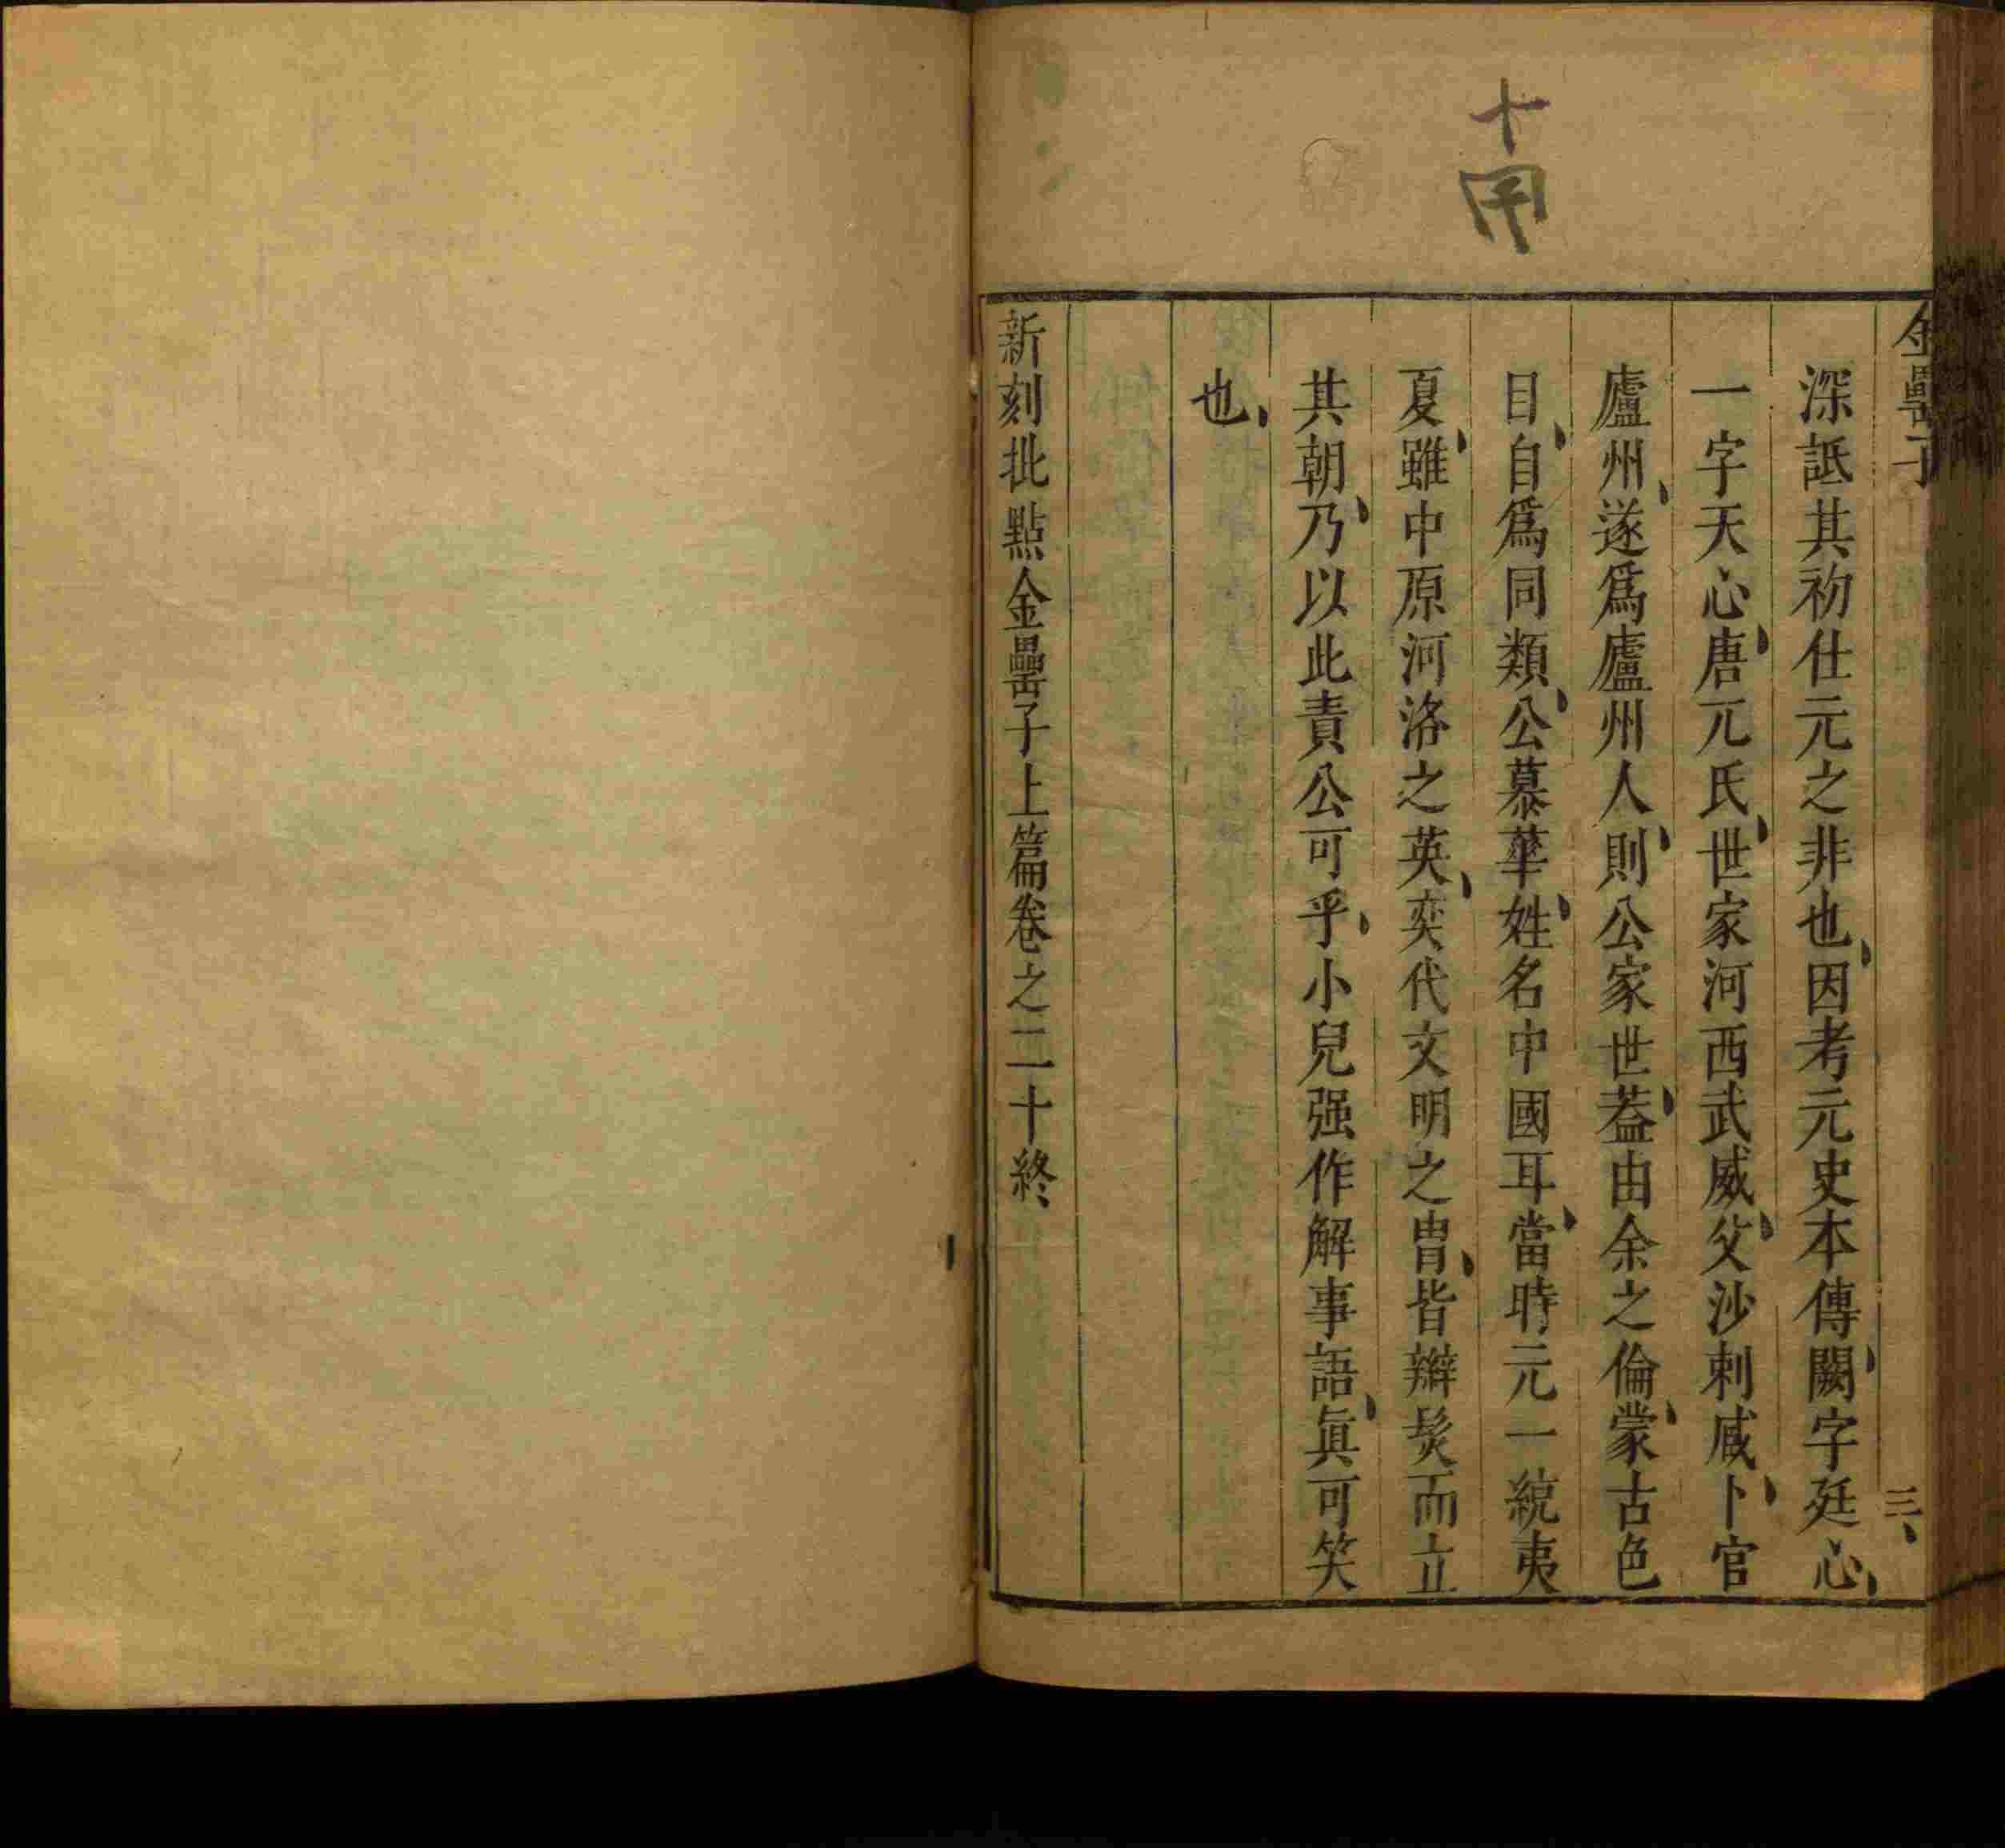 金罍子
深詆其初仕元之非也因考元史本傳闕字廷心
一字天心唐兀氏世家河西武威父沙剌臧卜官
廬州遂爲廬州人則公家世葢由余之倫蒙古色
目自爲同類公慕華姓名中國耳當時元一統夷
夏雖中原河洛之英奕代文明之胄皆辮髮而立
其朝乃以此責公可乎小兒强作解事語眞可笑
也
新刻批點金罍子上篇卷之二十終